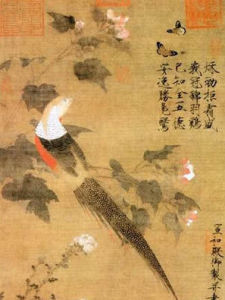 秋勁拒霜盛
峨冠錦羽雞
已知全五德
安逸勝鳧鷖
宣和殿御製并書